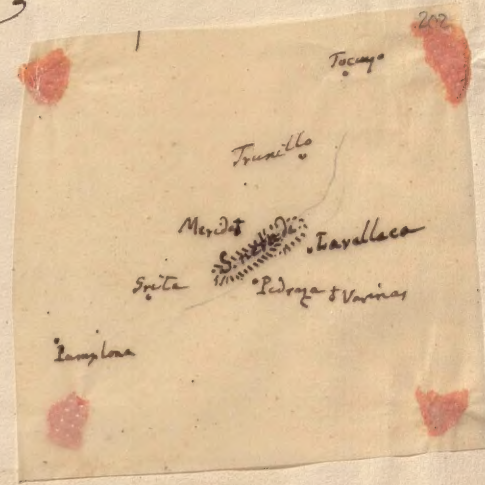 202
Tocuyo
Truxillo
Merida
Sierra de
Lavellaca
Grita
Pedraza
Varinas
Pamplona